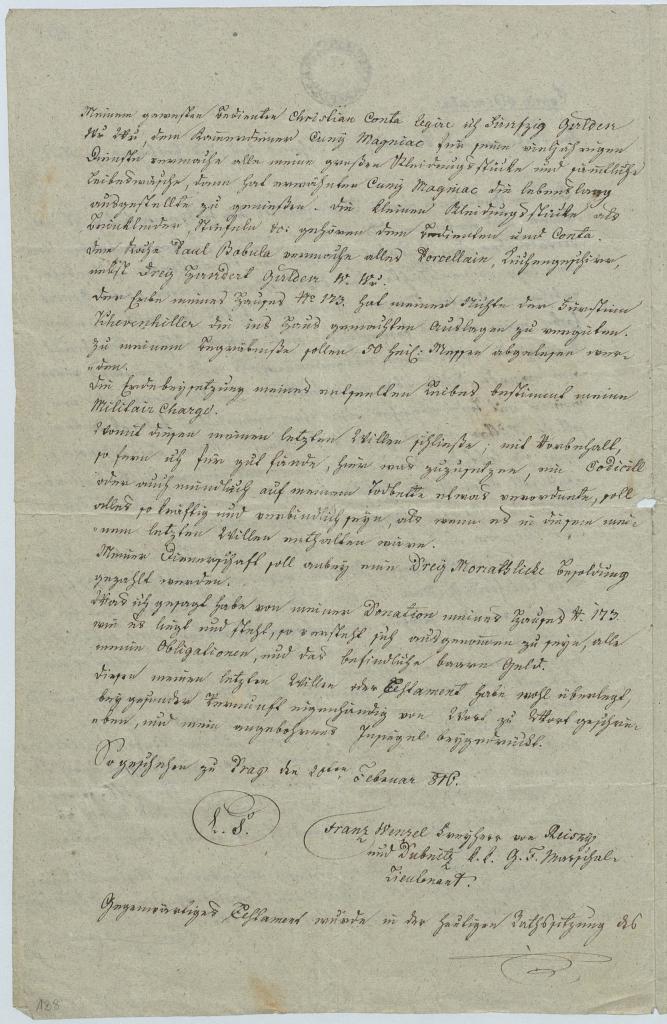 Meinem gewesten Bedienten Christian Conta legire ich Fünfzig Gulden
W: W:, dem Kammerdiener Cunÿ Magniac für seine vieljährigen
Dienste vermache alle meine großen Kleidungsstücke und sämtliche
Leibeswäsche, dann hat erwähnter Cunÿ Magniac die lebenslang
ausgestellte zu genießen. Die kleinen Kleidungsstücke als
Beinkleider, Stiefeln &c: gehören dem Bedienten und Conta.
Dem Koche Paul Babula vermache alles Porcellain, Küchengeschirr,
nebst Dreÿ Hundert Gulden W. W:
Der Erbe meines Hauses No 173. hat meiner Nichte der Fürstinn
Khevenhiller die ins Haus gemachten Auslagen zu vergüten.
Zu meinem Begräbniße sollen 50 heil: Messen abgelesen wer-
den.
Die Erdebeÿsetzung meines entseelten Leibes bestimmt meine
Militair Charge.
Womit diesen meinen letzten Willen schließe; mit Vorbehalt,
so fern ich für gut fände, hier was zuzusetzen, ein Codicill
oder auch mündlich auf meinem Todbette etwas verordnete, soll
alles so kräftig und verbindlich seÿn, als wenn es in diesem mei-
nem letzten Willen enthalten wäre.
Meiner Dienerschaft soll anbeÿ eine Dreÿ Monathliche Besoldung
gezahlt werden.
Was ich gesagt habe von meiner Donation meines Hauses N. 173.
wie es liegt und steht, so versteht sich ausgenommen zu seÿn, alle
meine Obligationen, und das befindliche baare Geld.
Diesen meinen letzten Willen oder Testament habe wohl überlegt,
beÿ gesunder Vernunft eigenhändig von Wort zu Wort geschrie-
ben, und mein angebohrnes Insiegel beÿgedruckt.
So geschehen zu Prag den 20ten Februar 816.
L. S.
Franz Wenzel Freÿherr von Reiskÿ
und Dubnitz k. k. G. F. Marschal-
Lieutenant.
Gegenwärtiges Testament wurde in der heutigen Rathssitzung des
188